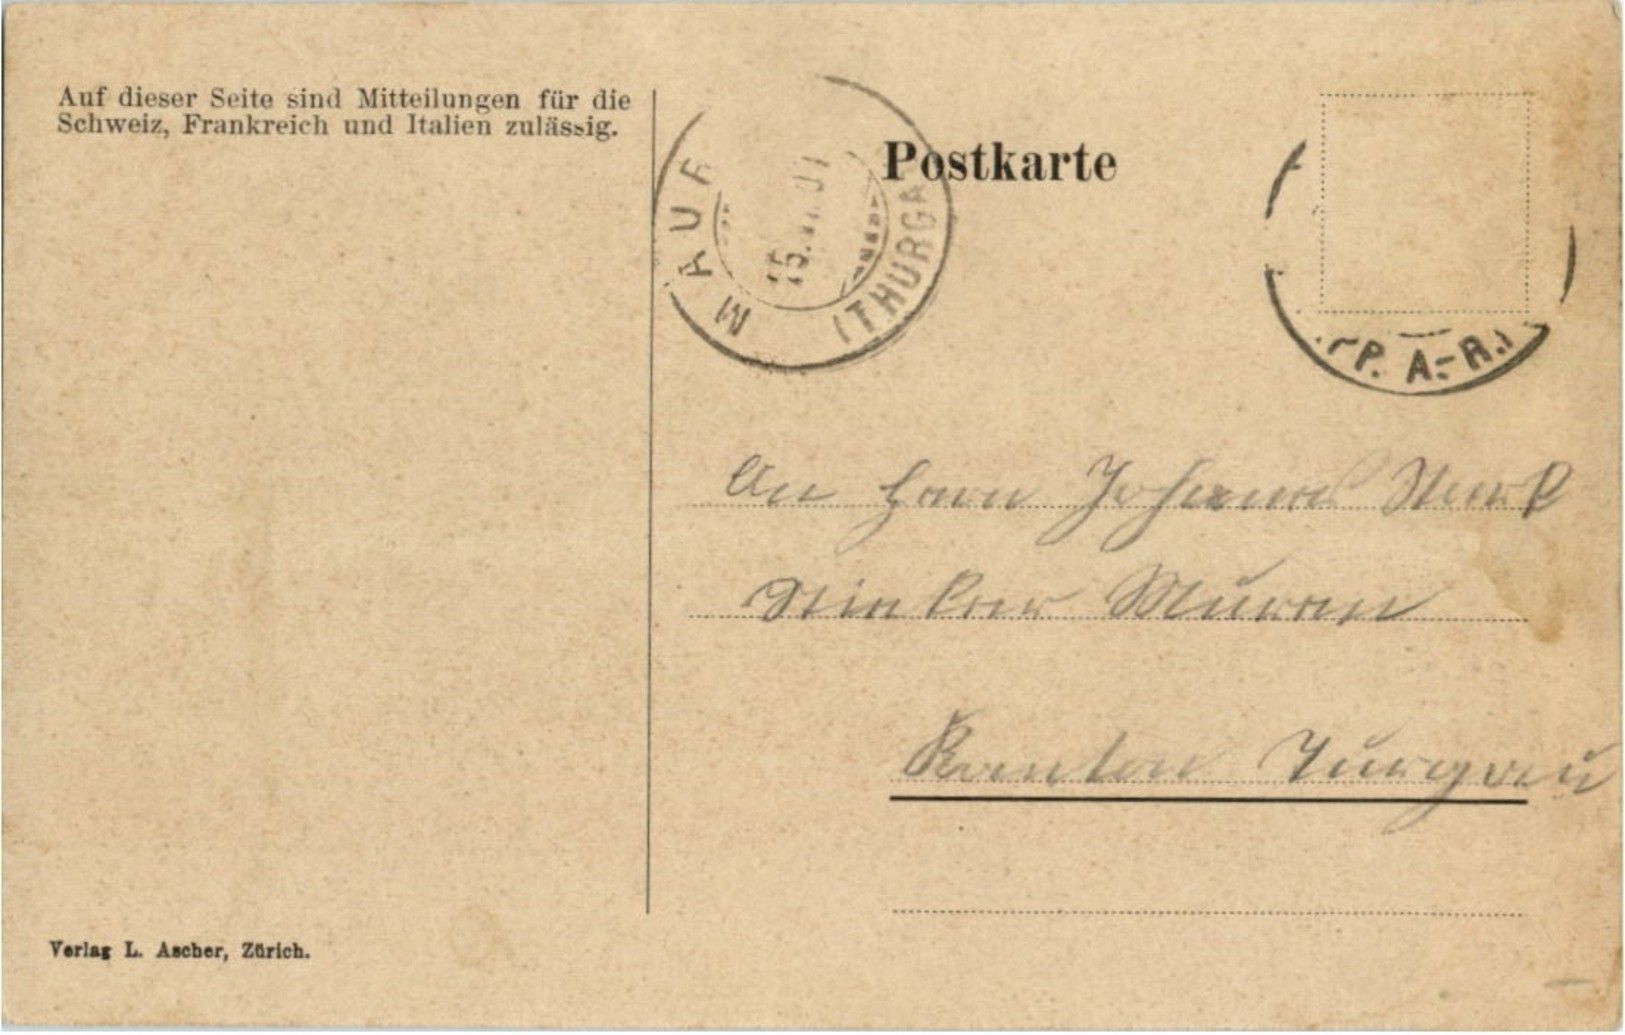 Auf dieser Seite sind Mitteilungen für die
Schweiz, Frankreich und Italien zulässig.
Postkarte
MAUR
(THURGA
15.
P. A.-R.
An Herrn Johannes
Mauren
Kanton Turgau
Verlag L. Ascher, Zürich.